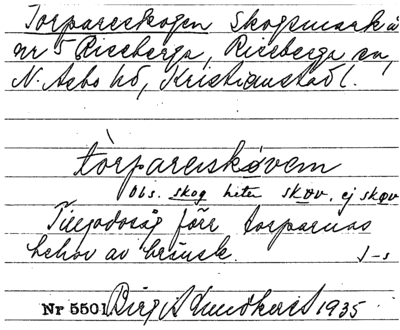 Torpareskogen skogsmark å
nr 5 Riseberga, Riseberga sn,
N. Asbo hd, Kristianstad l.
tòrpareskøvem
Obs. skog heter skøv, ej skov
Tillgodosåg förr torparnas
behov av bränsle. J-s
Nr 5501 Birg 1935